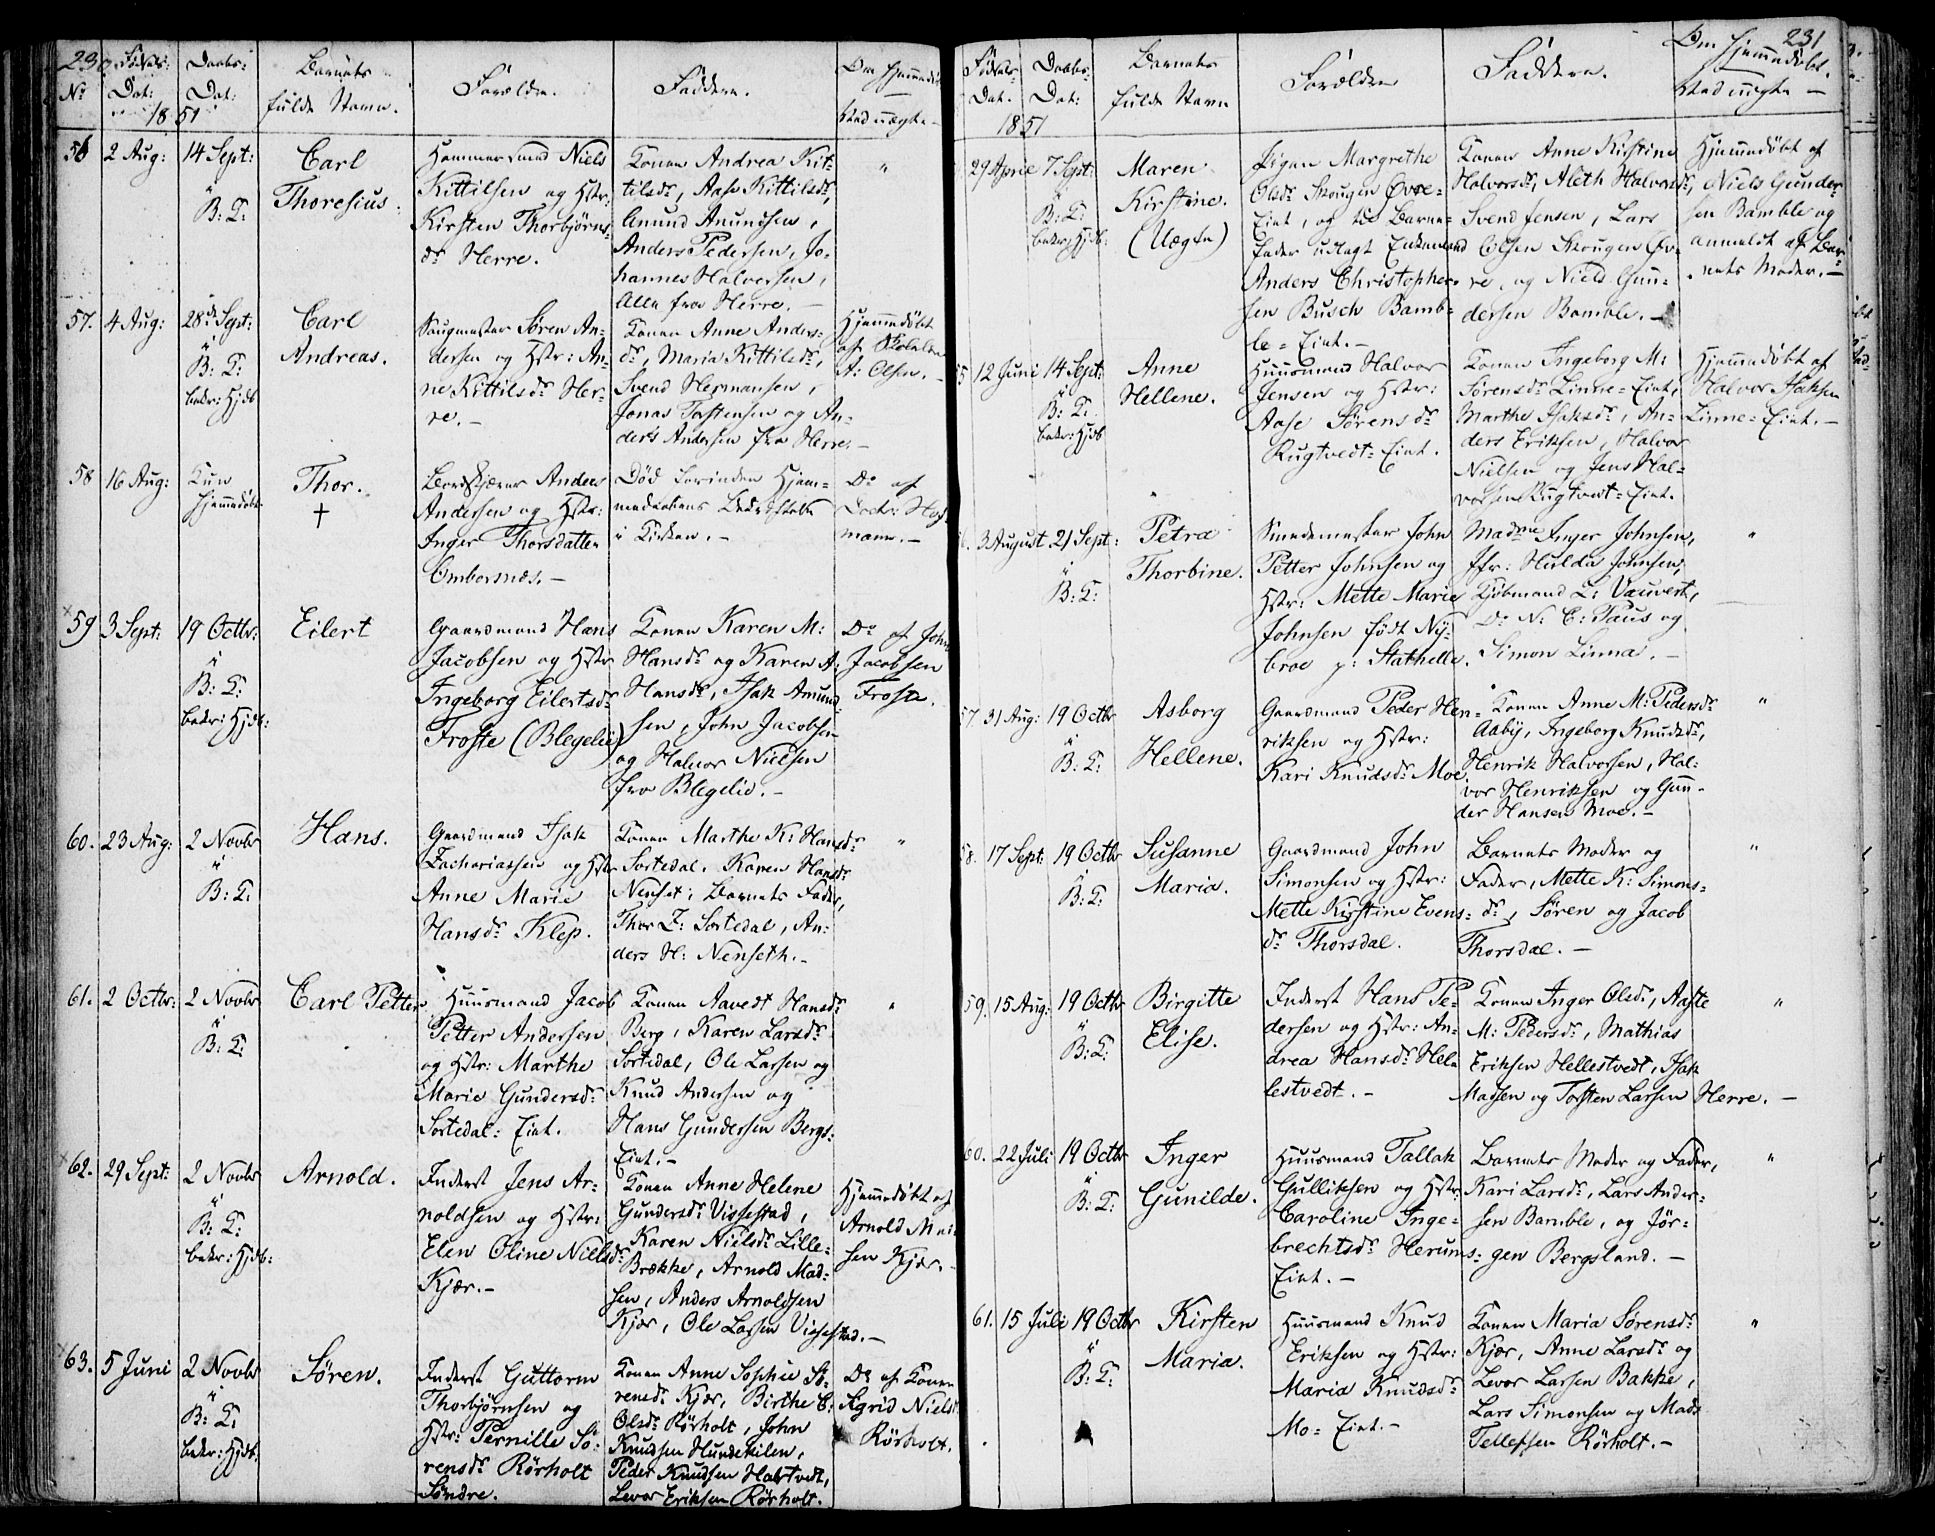 230
Fødsels-
Dat:
Daabs-
Dat:
1851
Barnets
fulde Navn.
Forældre.
Faddere.
Om hjemmedøbt.
Stadfæstet
No
56
2 Aug:
14 Sept:
B: K:
Carl
Thoresius.
Hammersmed Niels
Kittilsen og Hstr.
Kirsten Thorbjørns-
dr Herre.
Konen Andrea Kit-
tilsdr, Aase Kittilsdr,
Amund Amundsen,
Anders Pedersen, Jo-
hannes Halvorsen,
Alle fra Herre. –
"
57.
4 Aug:
28de Sept:
B: K:
bekr: Hjdb
Carl
Andreas.
Saugmester Søren An-
dersen og Hstr: An-
ne Kittilsdr Her-
re. –
Konen Anne Anders-
dr, Maria Kittilsdr,
Svend Hermansen,
Jonas Torstensen og An-
ders Andersen fra Herre. –
Hjemmedøbt
af Skolelærer
A: Olsen. –
58
16 Aug:
Kun
hjemmedøbt
Thor.
†
Anders
Andersen og Hstr:
Inger Thorsdatter
Ombornæs. –
Død forinden Hjem-
medaabens Bekræftelse
i Kirken. –
Do af
Doctr: Hof-
mann. –
59
3 Sept:
19 Octbr:
B: K:
bekr: Hjdb:
Eilert
Gaardmand Hans
Jacobsen og Hstr
Ingeborg Eilertsdr
Froste (Blegelie)
Konen Karen M:
Hansdr og Karen A:
Hansdr, Isak Amund-
sen, John Jacobsen
og Halvor Nielsen
fra Blegelie. –
Do af John
Jacobsen
Froste.
60.
23 Aug:
2 Novbr
B: K:
Hans.
Gaardmand Isak
Zachariassen og Hstr
Anne Marie
Hansdr Klep.
Konen Marthe K: Hansdr
Sortedal, Karen Hansdr
Nenset, Barnets Fader,
Thor Z: Sortedal, An-
ders H: Nenseth. –
"
61.
2 Octbr:
2 Novbr
B: K:
Carl Petter.
Huusmand Jacob
Petter Andersen
og Hstr: Marthe
Marie Gundersdr
Sortedal-Eiet.
Konen Aavedt Hansdr
Berg, Karen Larsdr
Sortedal, Ole Larsen og
Knud Andersen og
Hans Gundersen Bergs-
Eiet. –
"
62.
29 Sept:
2 Novbr
B: K:
bekr: Hjdb:
Arnold.
Inderst Jens Ar-
noldsen og Hstr:
Elen Oline Nielsdr
Kjær. –
Konen Anne Helene
Gundersdr Vissestad,
Karen Nielsdr Lille-
Brække, Arnold Mad-
sen, Anders Arnoldsen
Kjær, Ole Larsen Vissestad. –
Hjemmedøbt af
Arnold Mad-
sen Kjær. –
63.
5 Juni
2 Novbr
B: K:
bekr: Hjdb:
Søren.
Inderst Guttorm
Thorbjørnsen og
Hstr: Pernille Sø-
rensdr Rörholt
Søndre.
Konen Anne Sophie Sø-
rensdr Kjær, Birthe E:
Olsdr Rörholt, John
Knudsen Hundekilen,
Peder Knudsen Hartvedt,
Levor Eriksen Rörholt.
Do af Konen
Sigrid Nielsdr
Rörholt.
231
Fødsels-
Dat.
Daabs-
Dat:
1851
Barnets
fulde Navn
Forældre
Faddere.
Om hjemmedøbt.
Stadfæstet –
29 April
7 Sept:
B: K:
bekr: Hjdb:
Maren
Kirstine.
(Uægte)
Pigen Margrethe
Olsdr Skougen Øvre-
Eiet, og til Barne-
fader udlagt Enkemand
Anders Christopher-
sen Busch Bamb-
le-Eiet. –
Konen Anne Kirstine
Halvorsdr, Aleth Halvorsdr,
Svend Jensen, Lars
Olsen Skougen Øv-
re, og Niels Gun-
dersen Bamble. –
Hjemmedøbt af
Niels Gunder-
sen Bamble og
anmeldt af Bar-
nets Moder. –
5
12 Juni
14 Sept:
B: K:
bekr: Hjdb
Anne
Hellene.
Huusmand Halvor
Jensen og Hstr:
Aase Sørensdr
Rugtvedt-Eiet.
Konen Ingeborg M:
Sørensdr Linne-Eiet,
Marthe Isaksdr, An-
ders Eriksen, Halvor
Nielsen og Jens Hal-
vorsen Rugtvedt-Eiet.
Hjemmedøbt af
Halvor Isaksen
Linne-Eiet. –
3 August
21 Sept:
B: K:
Petra
Thorbine.
Smedemester John
Petter Johnsen og
Hstr: Mette Marie
Johnsen født Ny-
broe p: Stathelle.
Madme Inger Johnsen,
Jfr: Hulda Johnsen,
Kjøbmand L: Vauvert,
Do N: C: Paus og
Simon Linna. –
"
57.
31 Aug:
19 Octbr
B: K:
Asborg
Hellene.
Gaardmand Peder Hen-
riksen og Hstr:
Kari Knudsdr Moe.
Konen Anne M: Pedersdr
Aaby, Ingeborg Knudsdr,
Henrik Halvorsen, Hal-
vor Henriksen og Gun-
der Hansen Moe. –
"
58.
17 Sept:
19 Octbr
B: K:
Susanne
Maria.
Gaardmand John
Simonsen og Hstr:
Mette Kirstine Evens-
dr Thorsdal.
Barnets Moder og
Fader, Mette K: Simons-
dr, Søren og Jacob
Thorsdal. –
"
59.
15 Aug:
19 Octbr
B: K:
Birgitte
Elise.
Inderst Hans Pe-
dersen og Hstr: An-
drea Hansdr Hel-
lestvedt. –
Konen Inger Olsdr, Aaste
M: Pedersdr, Mathias
Eriksen Hellestvedt, Isak
Madsen og Torsten Larsen Herre. –
"
60.
22 Juli
19 Octbr
B: K:
Inger
Gunilde.
Huusmand Tallak
Gulliksen og Hstr
Caroline Inge-
brechtsdr Herums-
Eiet. –
Barnets Moder og Fader,
Kari Larsdr, Lars Ander-
sen Bamble, og Jør-
gen Bergsland. –
"
61.
15 Juli
19 Octbr
B: K:
Kirsten
Maria.
Huusmand Knud
Eriksen og Hstr:
Maria Knudsdr
Mo-Eiet. –
Konen Maria Sørensdr
Kjær, Anne Larsdr og
Levor Larsen Bakke,
Lars Simonsen og Mads
Tellefsen Rörholt. –
"